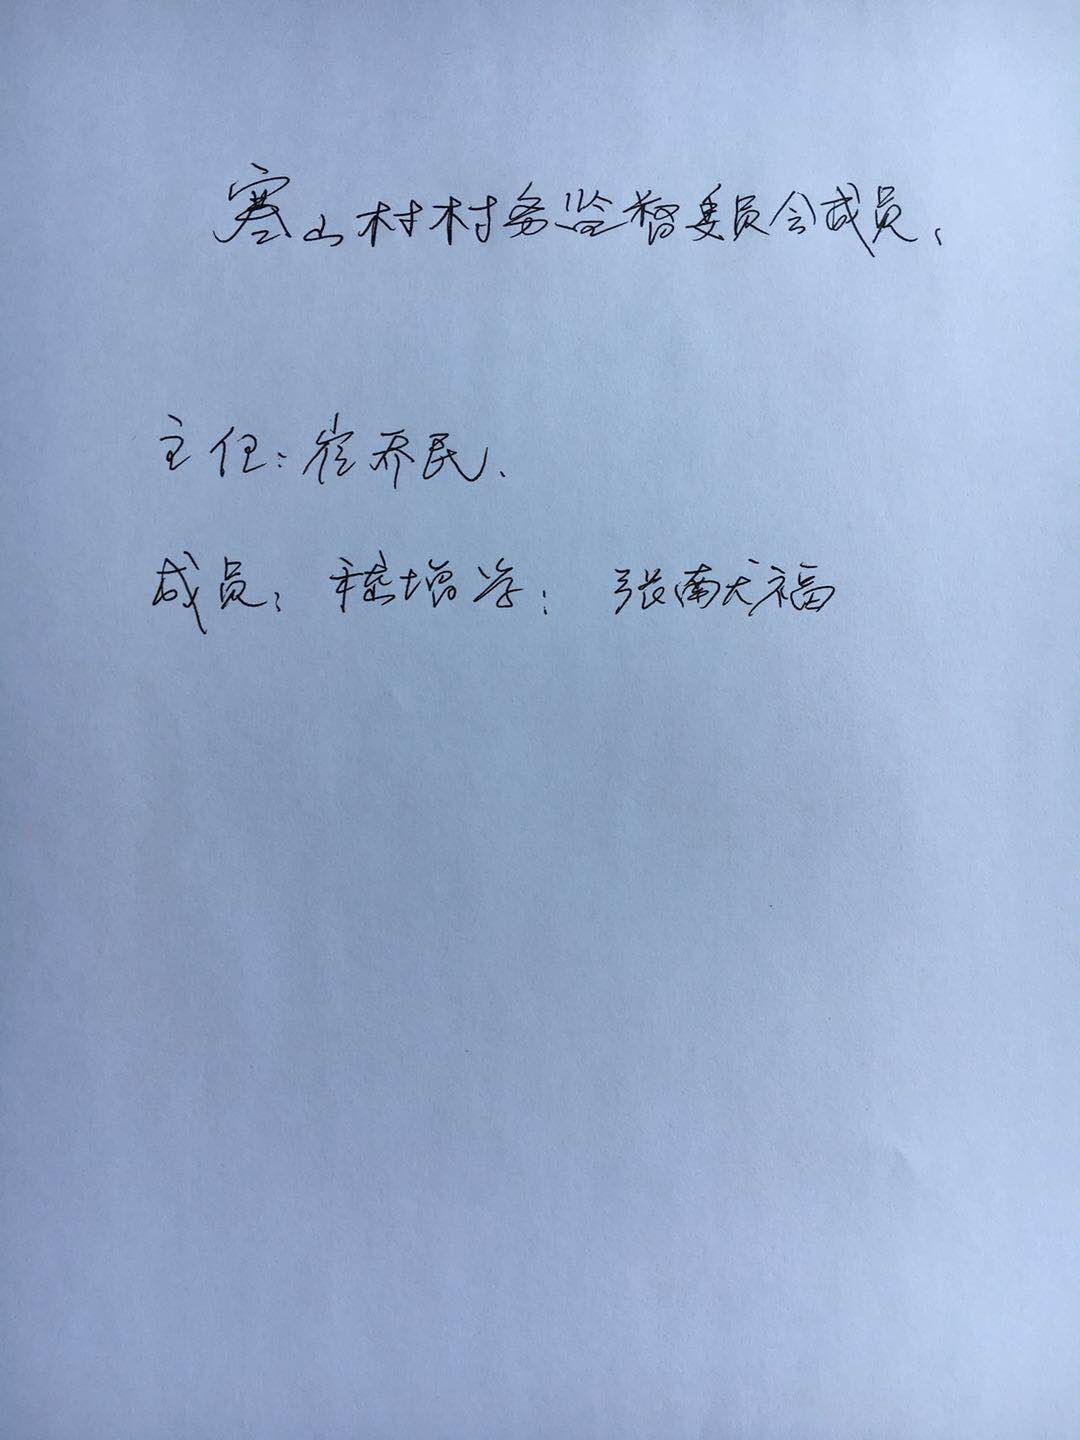 寨山村村务监督委员会成员、
主任:崔乔民、
成员: 程增学: 张南天福